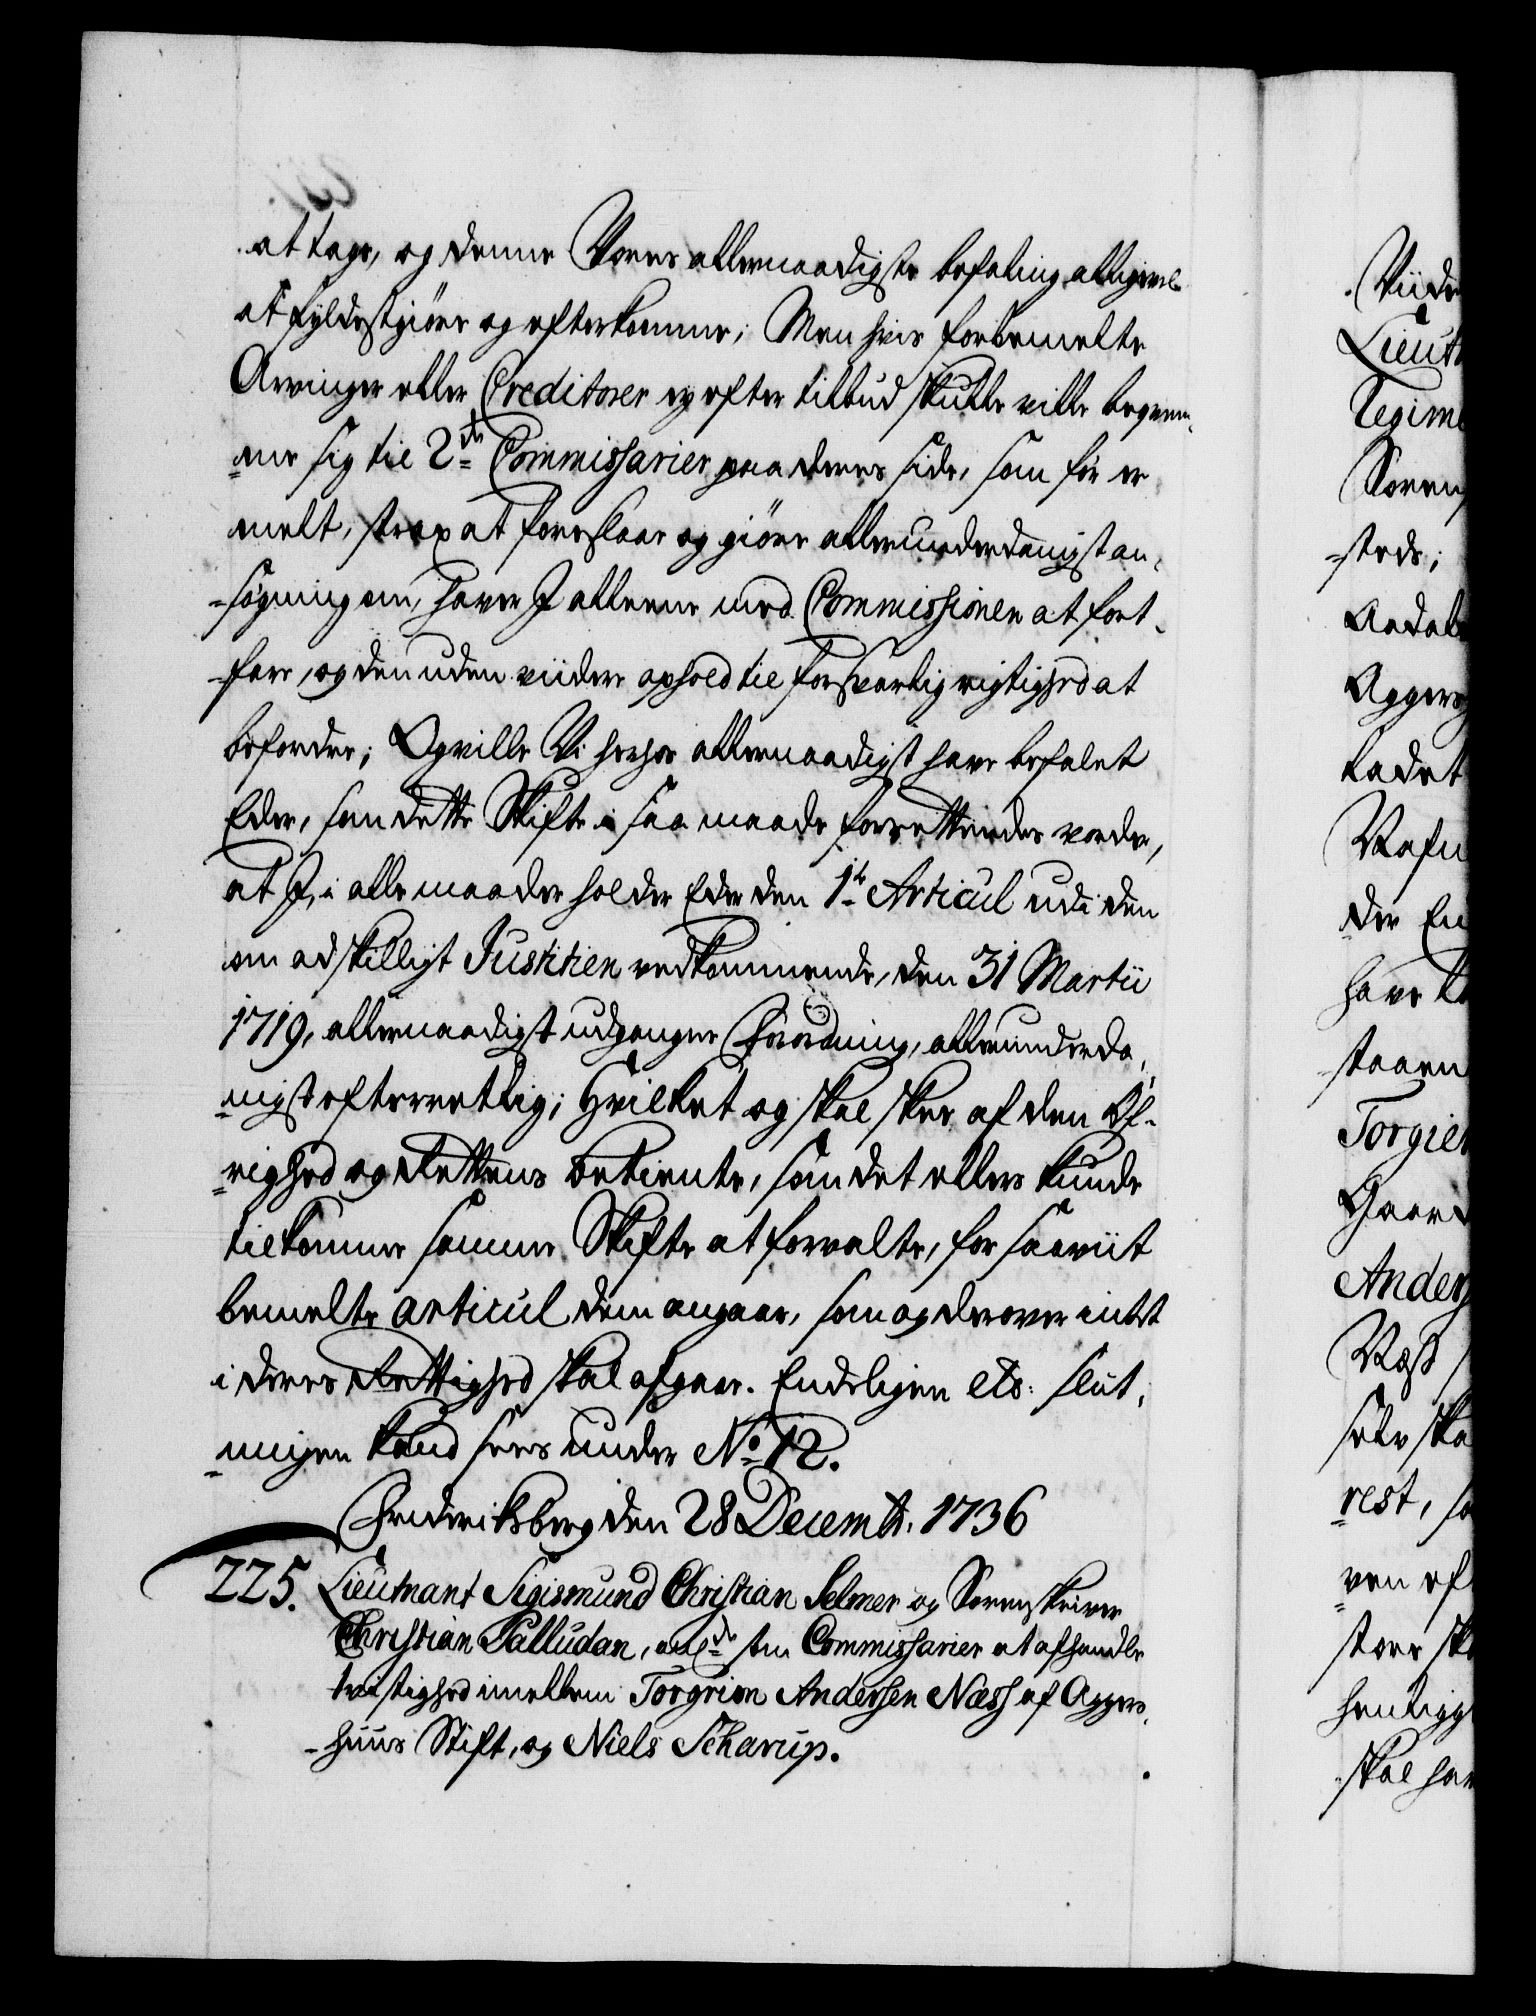 at tage, og denne Vores allernaadigste befaling alligevel
at fyldestgiøre og efterkomme; Men hvis forbemelte
Arvinger eller Creditorer ey efter tilbud skulle ville beqvem-
me sig til 2de Commissarier paa deres side, som før er
melt, strax at foreslaae og giøre allerunderdanigst an-
søgning om, haver I alleene med Commissionen at fort-
fare, og den uden viidere ophold til forsvarlig rigtighed at
befordre; Og ville Vi herhos allernaadigst have befalet
Eder, som dette Skifte i saa maade forrettendes vorder,
at I, i alle maader holder Eder den 1te Articul udi den
om adskilligt Justitien vedkommende, den 31 Martii
1719, allernaadigst udgangne Forordning, allerunderda-
nigst efterrettlig; Hvilket og skal skee af den Øf-
righed og Rettens betiente, som det ellers kunde
tilkomme samme Skifte at forvalte, for saaviit
bemelte articul dem angaar, som og derover intet
i deres Rettighed skal afgaae. Endeligen etc: slut-
ningen kand sees under No 12.
Friderichsberg den 28 Decembr. 1736
225. Lieutnant Sigismund Christian Selmer og Sorenskriver
Christian Palludan, anlde som Commissarier at afhandle
tvistighed imellem Torgrim Andersen Næss af Aggers-
huus Stift, og Niels Scharup.
Viide
Lieut
Regime
Soren
steds;
Aadal
Aggers
ladet
der En
have
staaen
Torgie
Gaar
Anders
Næss
selv ska
rest, so
ven ef
store sk
skal hav